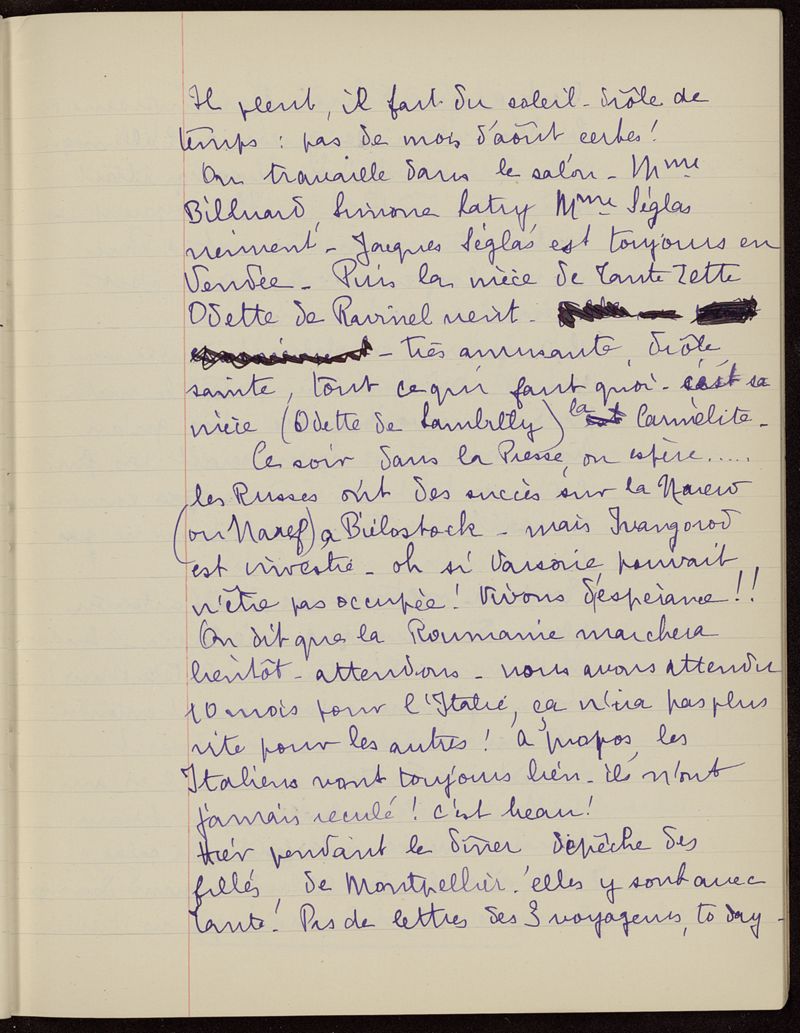 Il pleut, il fait du soleil - drôle de
temps : pas de mois d'août certes !
On travaille dans le salon - Mme
Billuard, Simone Latry Mme Séglas
viennent - Jacques Séglas est toujours en
Vendée - Puis la nièce de Tante Zette
Odette de Ravinel vient -
- très amusante, drôle,
sainte, tout ce qu'il faut quoi - c'est sa
nièce (Odette de Lambilly) la Carmélite -
Ce soir dans la Presse, on espère.....
les Russes ont des succès sur la Narew
(ou Naref) a Biélostock - mais Ivangorod
est investie - oh si Varsovie pouvait
n'être pas occupée ! Vivons d'espérance !!
On dit que la Roumanie marchera
bientôt - attendons - nous avons attendu
10 mois pour l'Italie, ça n'ira pas plus
vite pour les autres ! à propos, les
Italiens vont toujours bien - ils n'ont
jamais reculé ! c'est beau !
Hier pendant le dîner dépêche des
filles, de Montpellier ! elles y sont avec
Tante ! Pas de lettres des 3 voyageurs, to day -